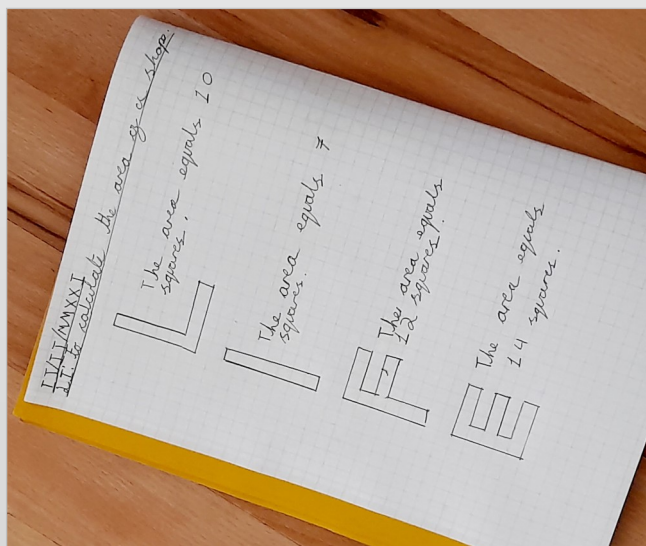 II/II/MMXXI
L.I: to calculate the area of a shape.
The area equals 10
squares.
The area equals 7
squares.
The area equals
12 squares.
The area equals
14 squares.